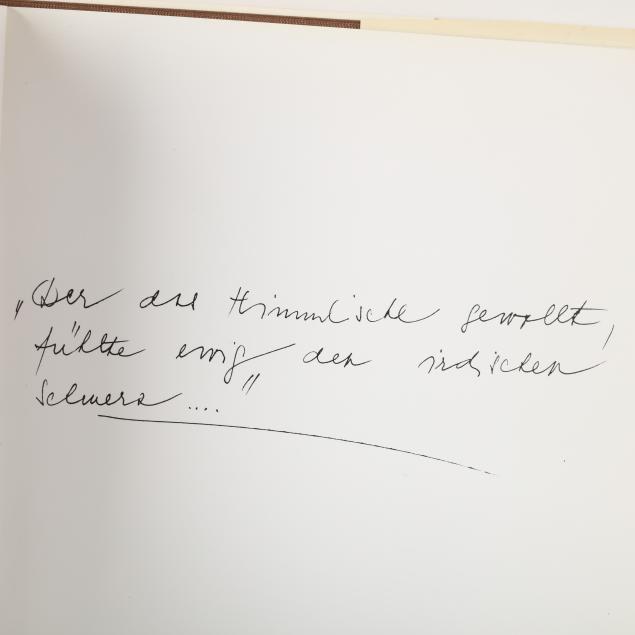 „Der das Himmlische gewollt,
fühlte ewig den irdischen
Schmerz ...."